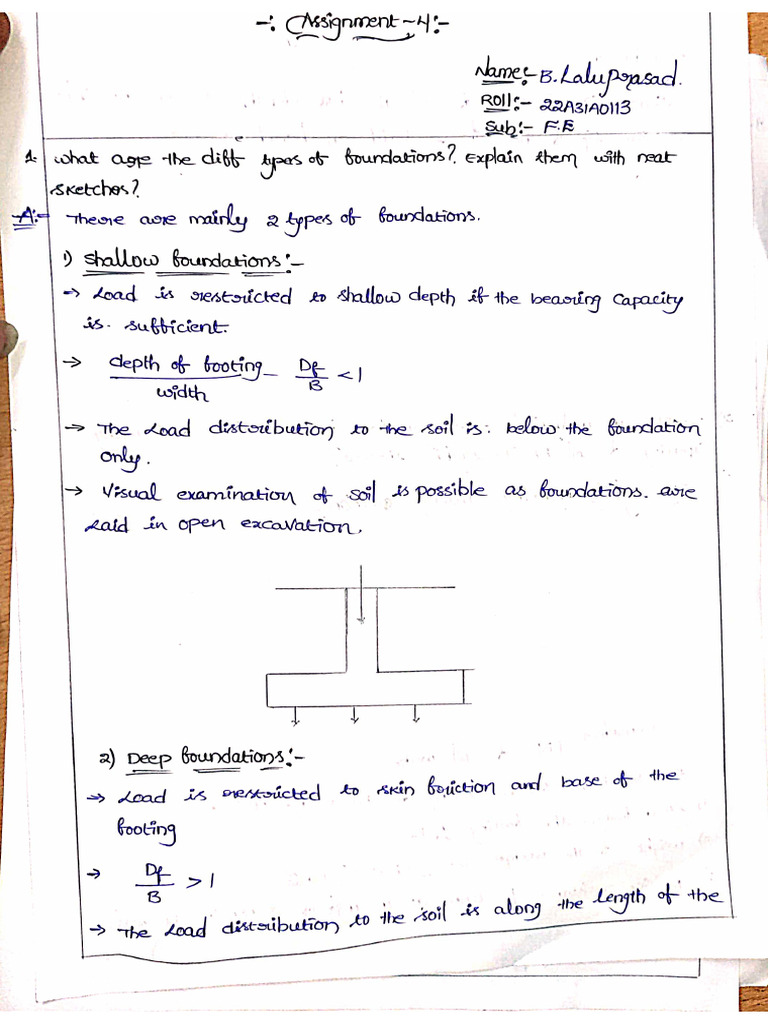 -: Assignment-4:-
Name:- B. Laluprasad.
Roll:- 22A31A0113
Sub:- F.E
1. What are the diff types of foundations? Explain them with neat
sketches?
A:- There are mainly 2 types of foundations.
1) Shallow foundations:-
→ Load is restricted to shallow depth if the bearing capacity
is sufficient.
→ depth of footing / width - Df / B < 1
→ The Load distribution to the soil is below the foundation
only.
→ Visual examination of soil is possible as foundations are
laid in open excavation.
2) Deep foundations:-
→ Load is restricted to skin friction and base of the
footing
→ Df / B > 1
→ The Load distribution to the soil is along the length of the